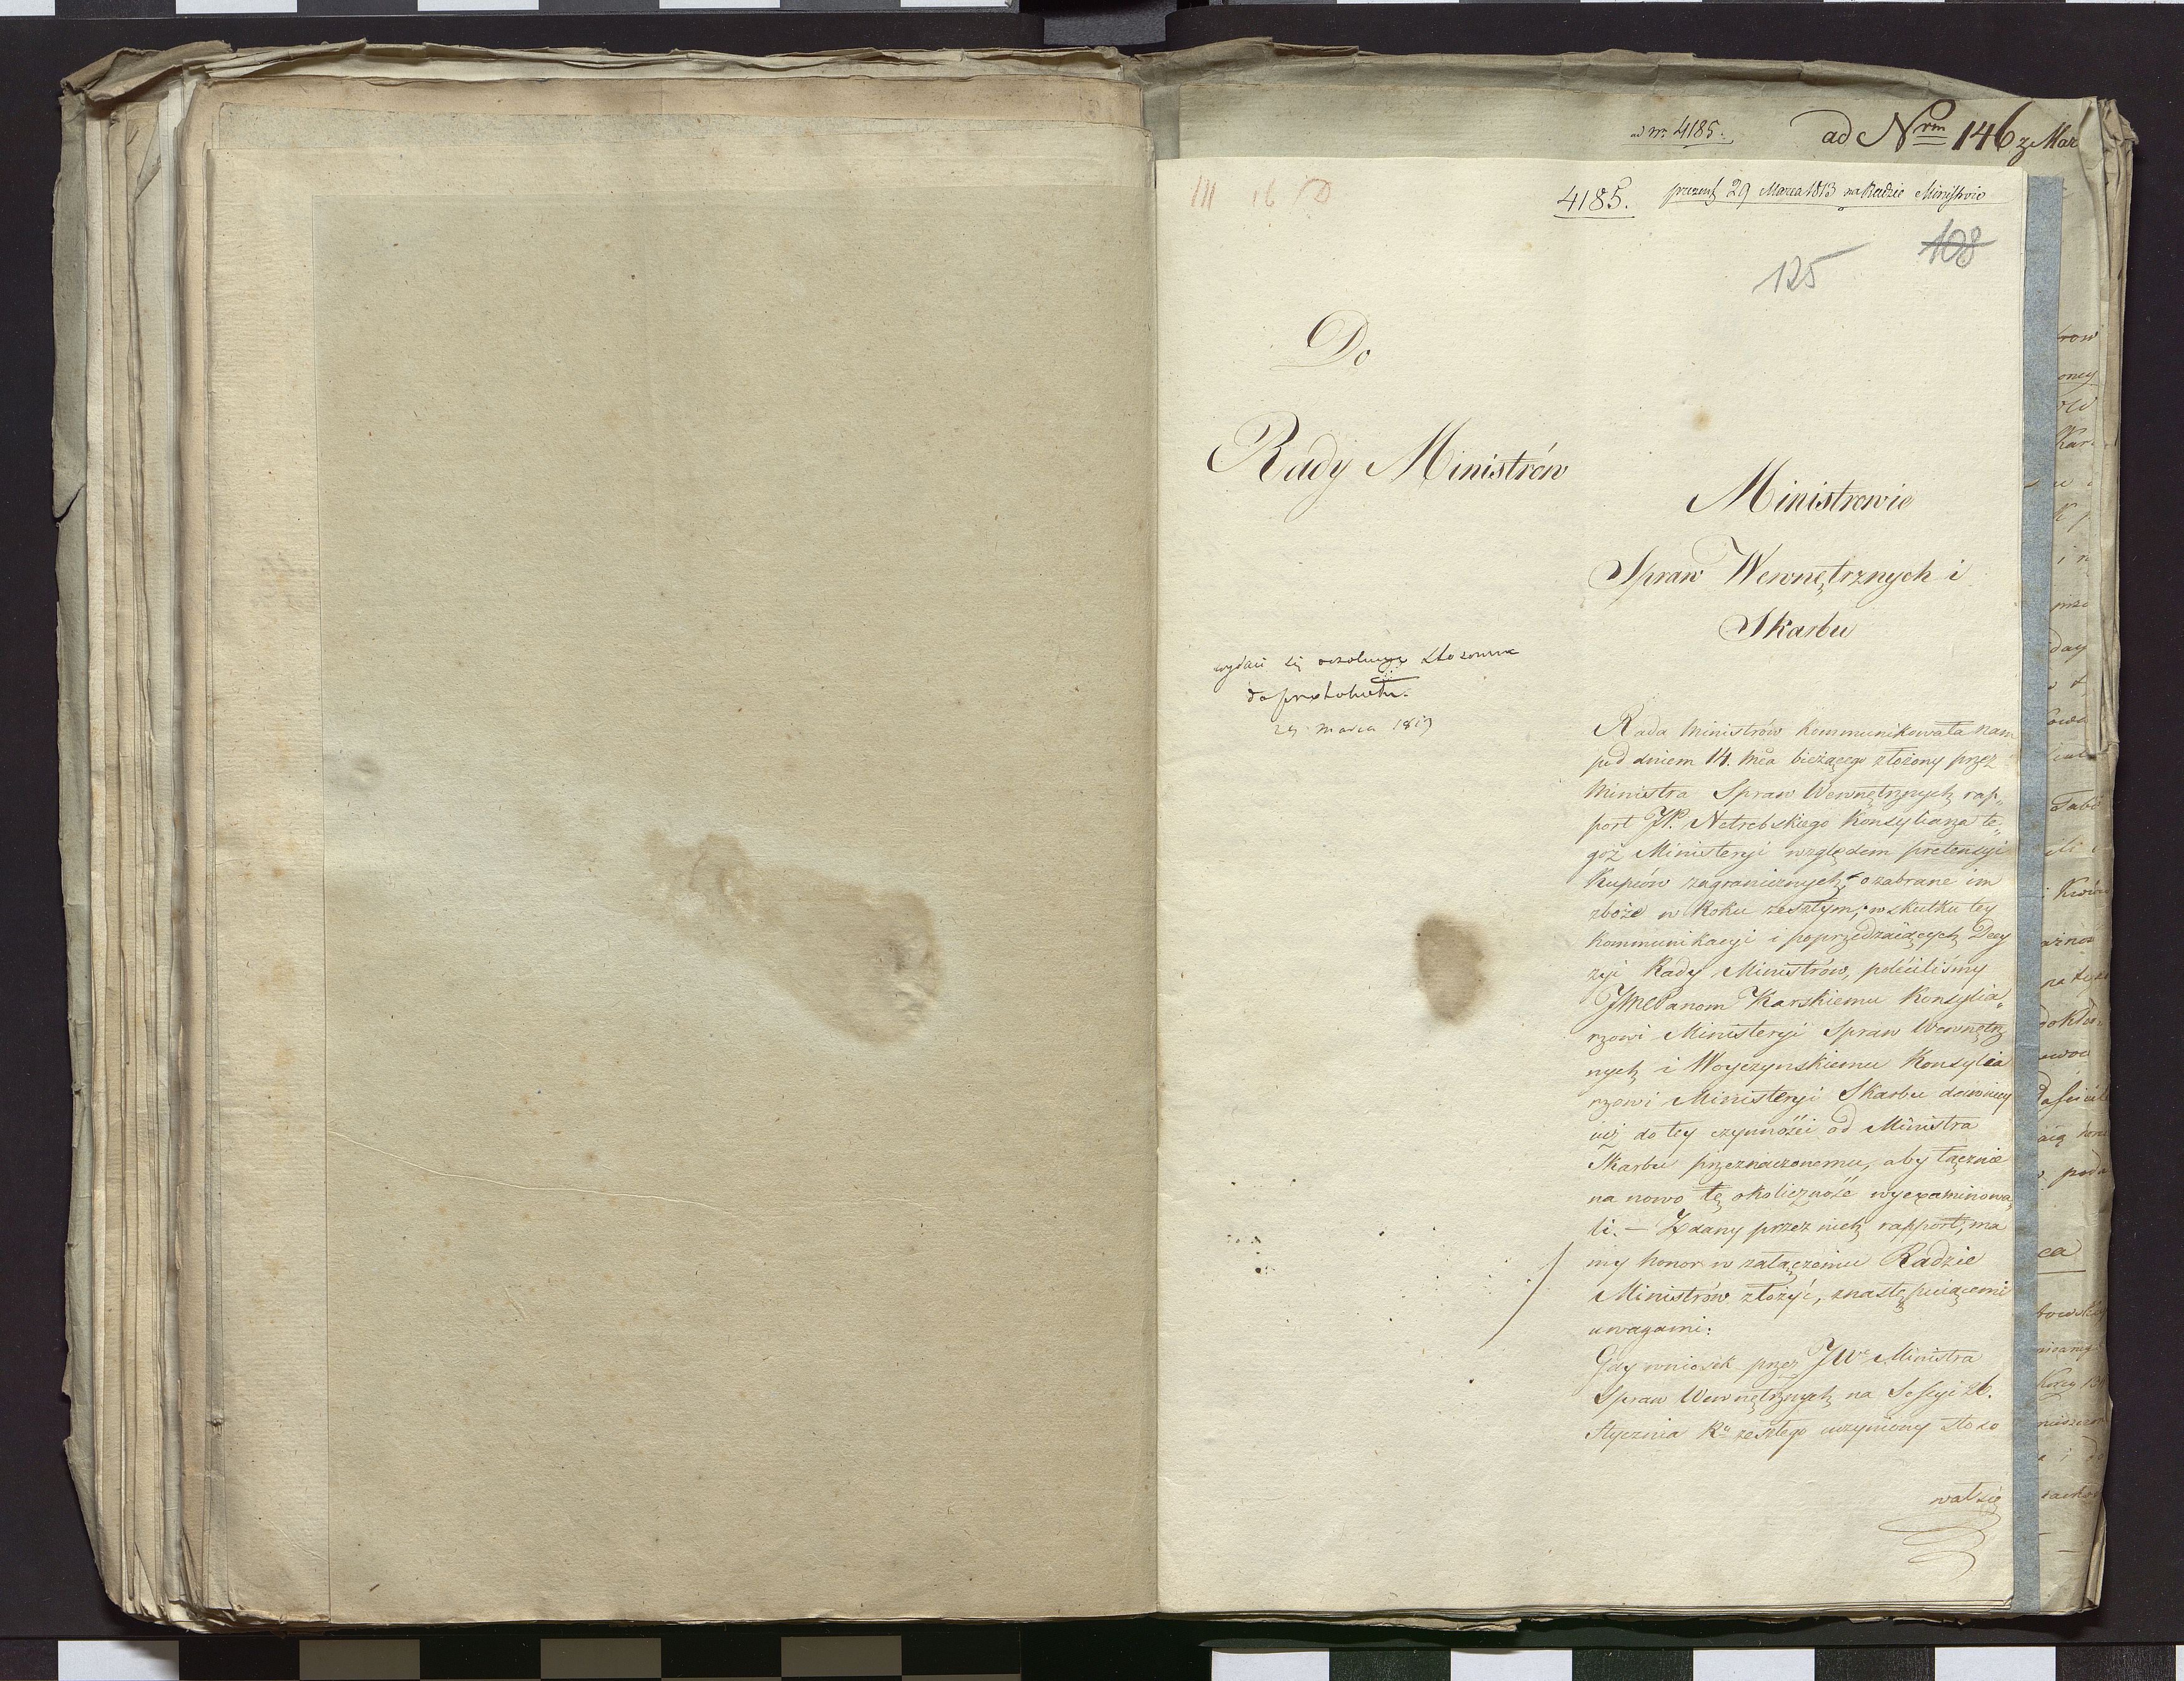 ad nr 4185.
ad Nrm 146 z Mar
III 16
4185. prezent 29 Marca 1813 na Radzie Ministrow
108
125
Do
Rady Ministrów
Ministrowie
Spraw Wewnętrznych i
Skarbu
wydaie się rezolucya stosowna
do protokułu.
29 Marca 1813
Rada Ministrów kommunikowała nam
pod dniem 14. mca bieżącego złożony przez
Ministra Spraw Wewnętrznych rap„
port JP. Netrebskiego Konsyliarza te„
goż Ministeryi względem pretensyi
Kupców zagranicznych, o zabrane im
zboże w Roku zeszłym; w skutku tey
kommunikacyi i poprzedzaiących Decy
zyi Rady Ministrów, poleciliśmy
JMCPanom Karskiemu Konsylia„
rzowi Ministeryi Spraw Wewnętrz
nych i Woyczynskiemu Konsylia
rzowi Ministeryi Skarbu dawniey
iuż do tey czynności od Ministra
Skarbu przeznaczonemu, aby łącznie
na nowo tę okoliczność wyexaminowa„
li. — Zdany przez nich rapport, ma
my honor w załączeniu Radzie
Ministrów złożyć, z następuiącemi
uwagami:
Gdy wniosek przez JWo Ministra
Spraw Wewnętrznych na Sessyi 26.
Stycznia Ru zeszłego uczyniony stoso
wał się